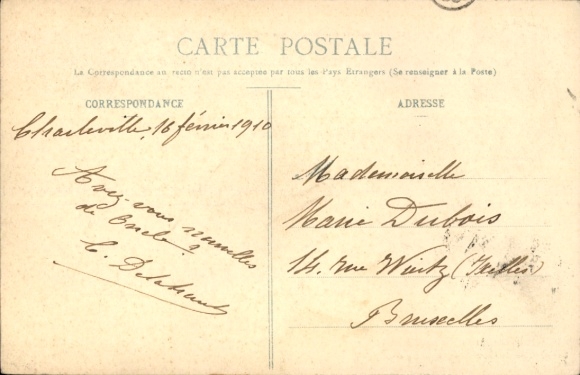 CARTE POSTALE
La Correspondance au recto n'est pas acceptée par tous les Pays Étrangers (Se renseigner à la Poste)
CORRESPONDANCE
Charleville, 16 février 1910
Avez-vous nouvelles
de
C.
ADRESSE
Mademoiselle
Marie Dubois
14. rue Wiertz (Ixelles)
Bruxelles